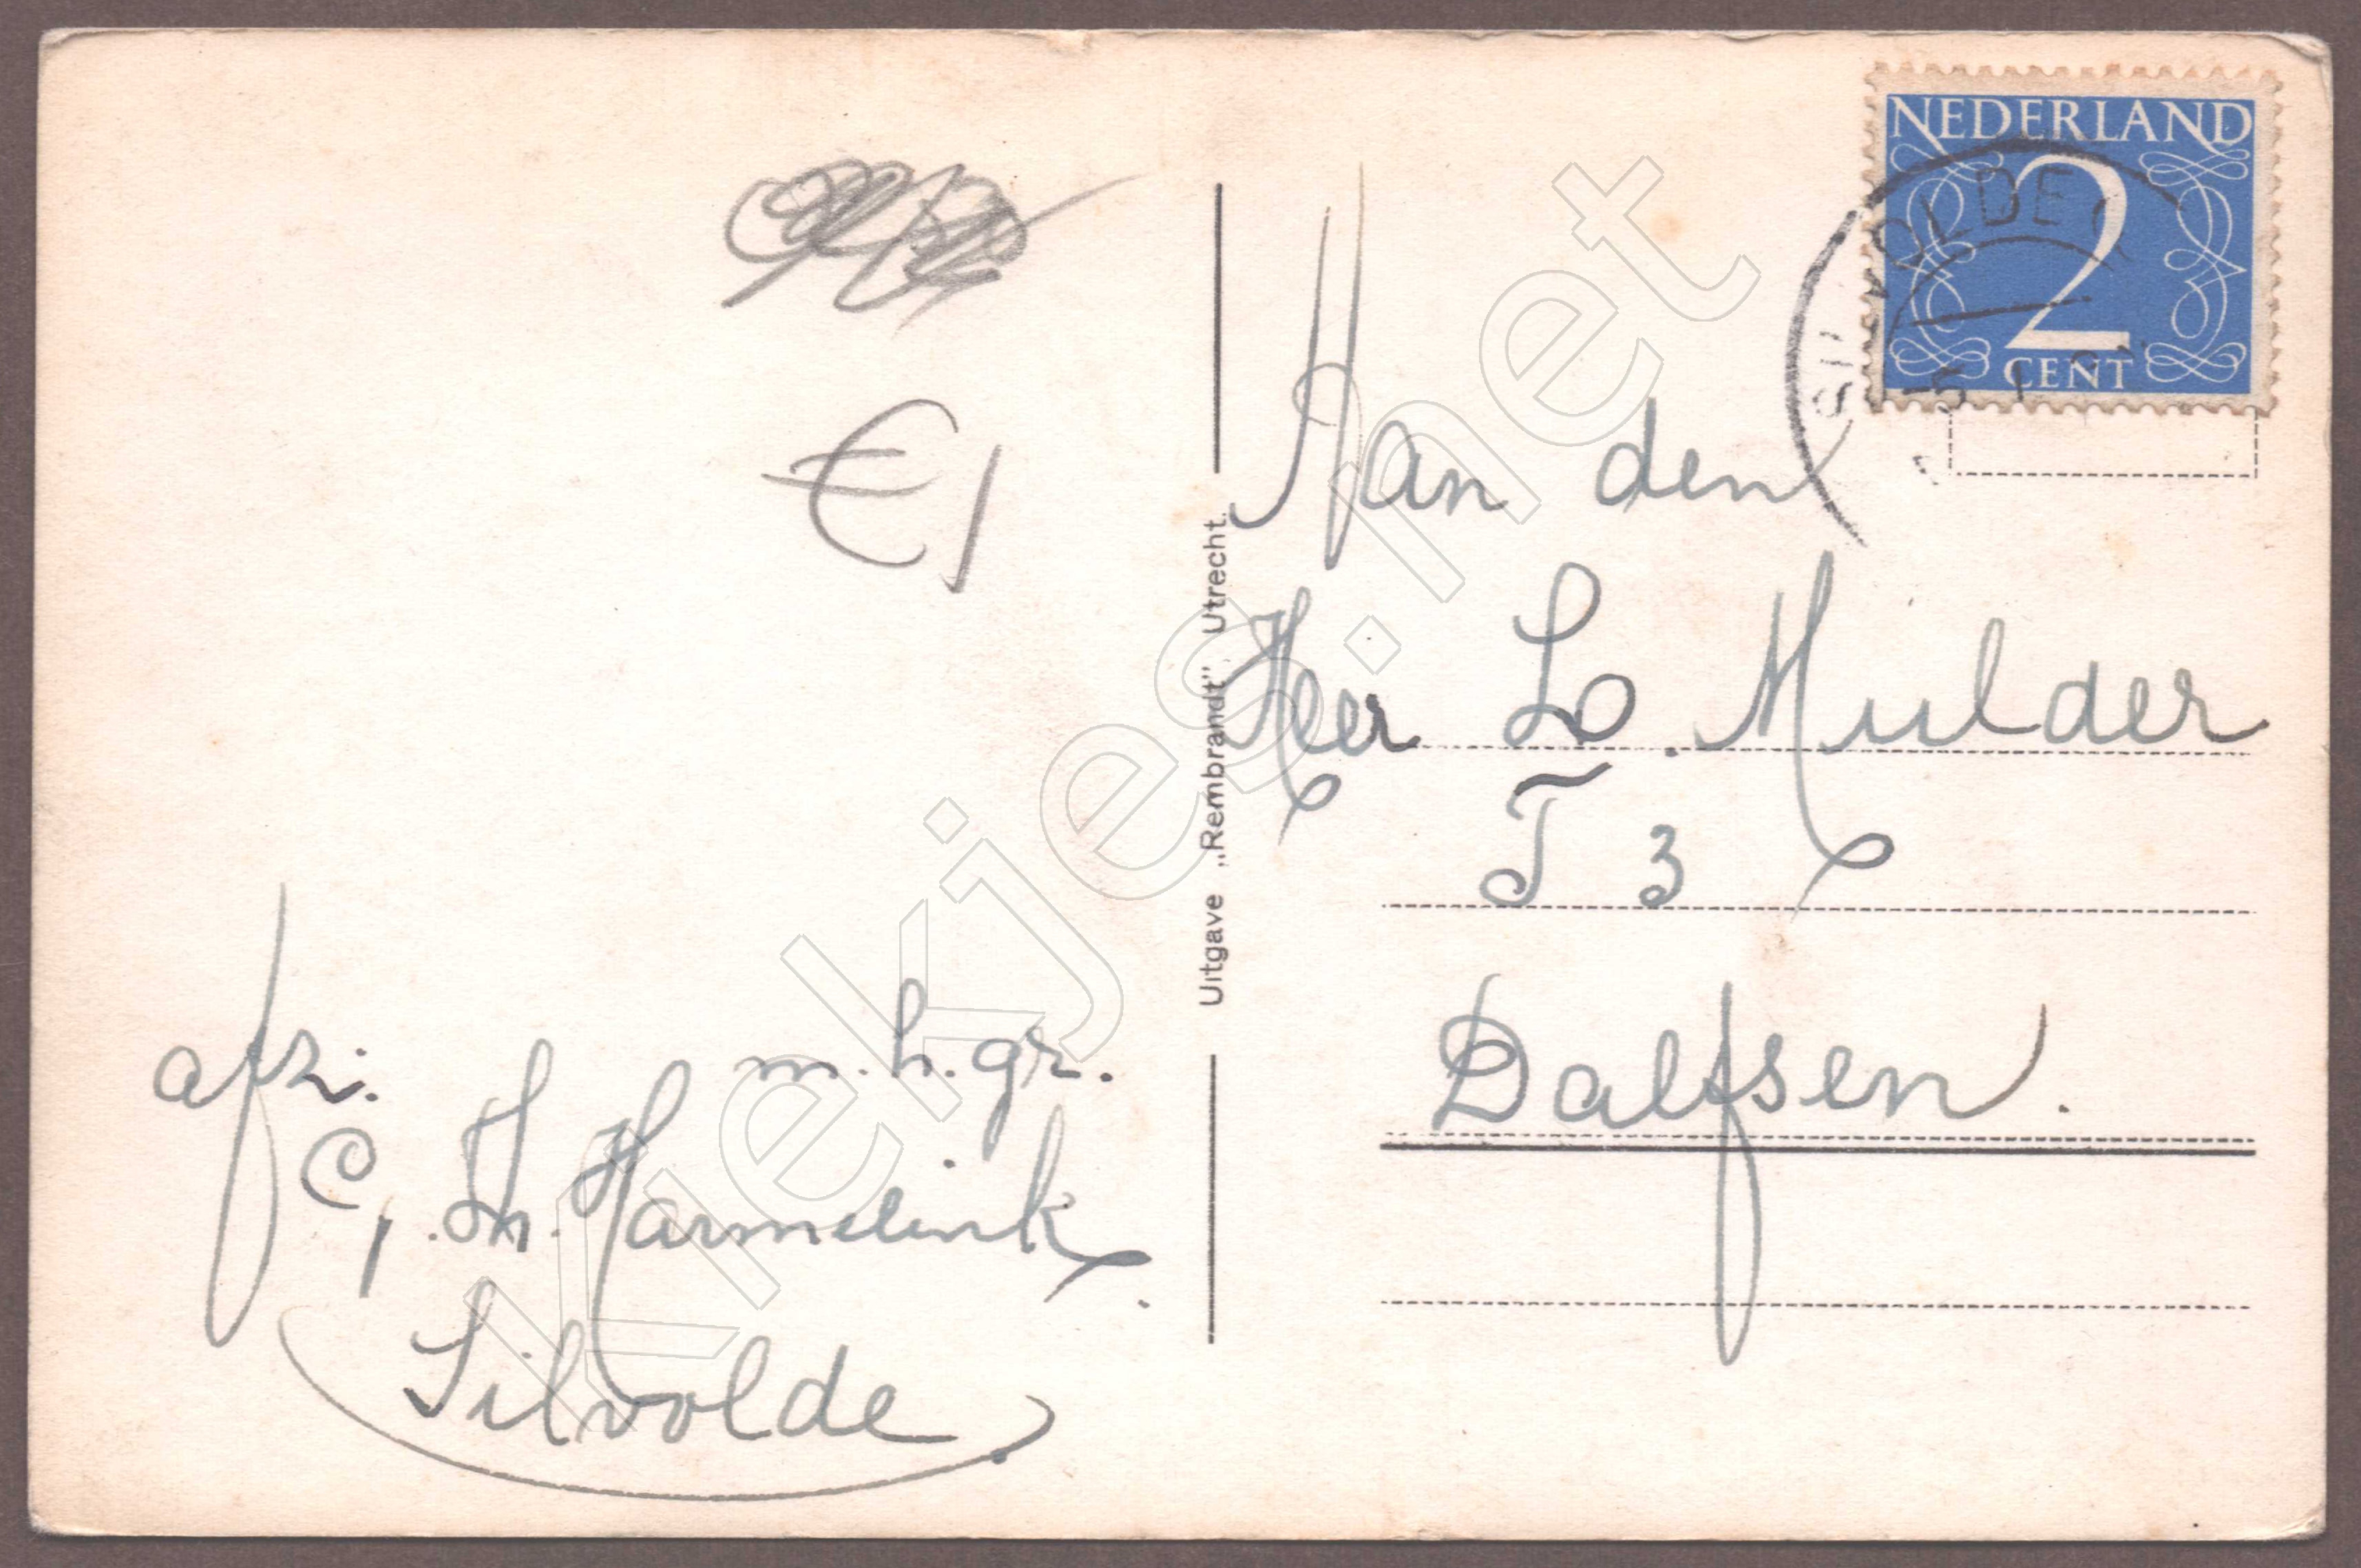 €1
afz.
m.h.gr.
C, H. Harmelink.
Silvolde.
Uitgave „Rembrandt” Utrecht.
NEDERLAND
2
CENT
SILVOLDE
Aan den
Heer Lo. Mulder
T 3
Dalfsen.
Kiekjes.net